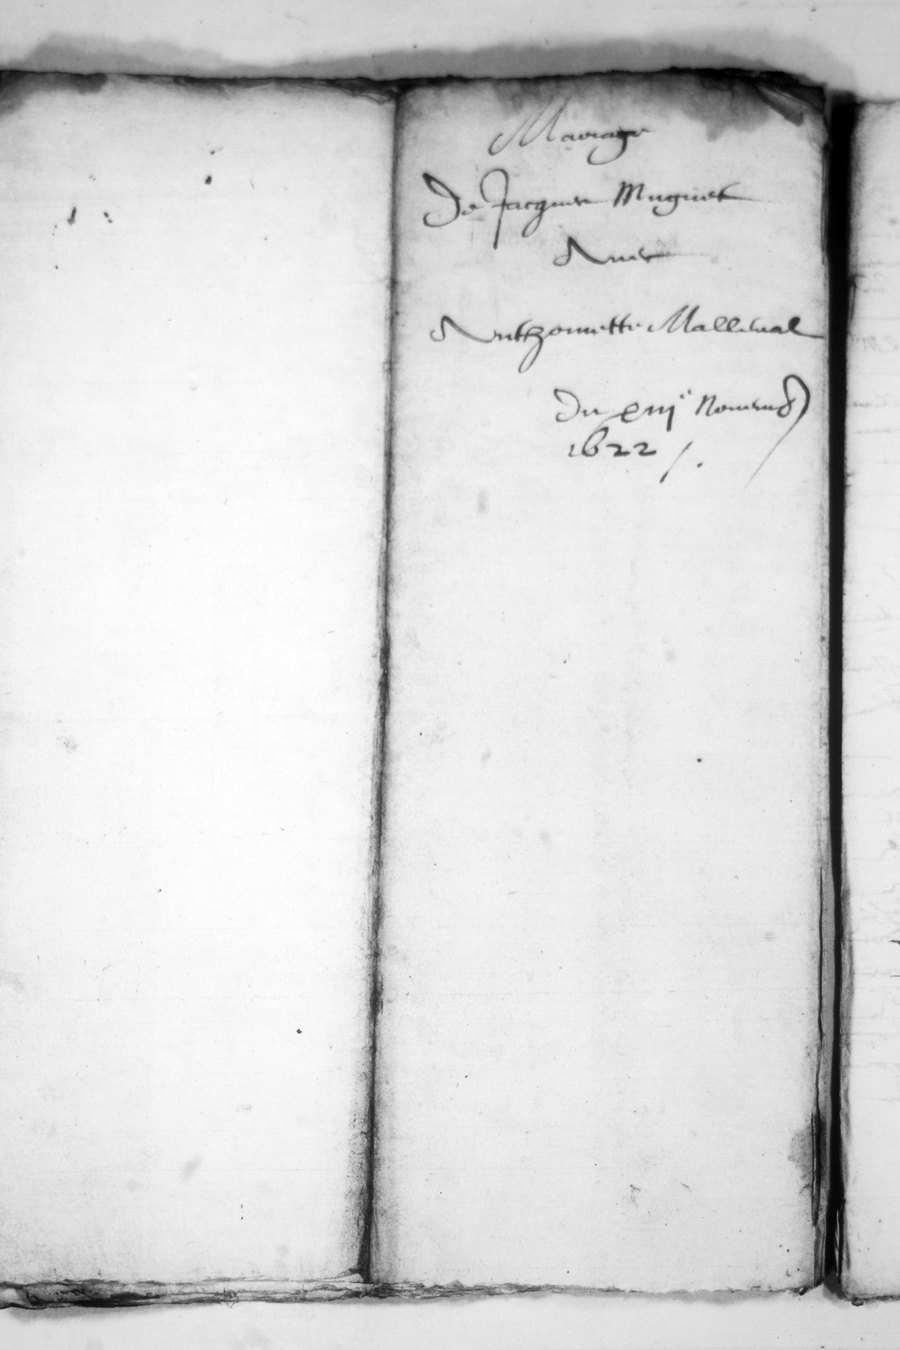 Mariage
De Jacques Muguet
Avec
Anthoinette Malleval
Du xiij^e Novemb
1622 /.